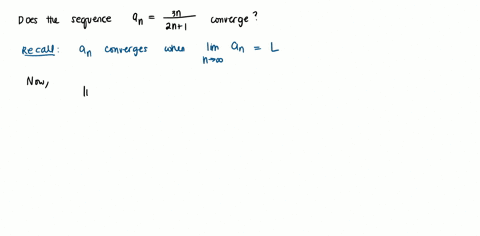 Does the sequence aₙ = 3n/(2n+1) converge?
Recall: aₙ converges when lim n→∞ aₙ = L
Now, li